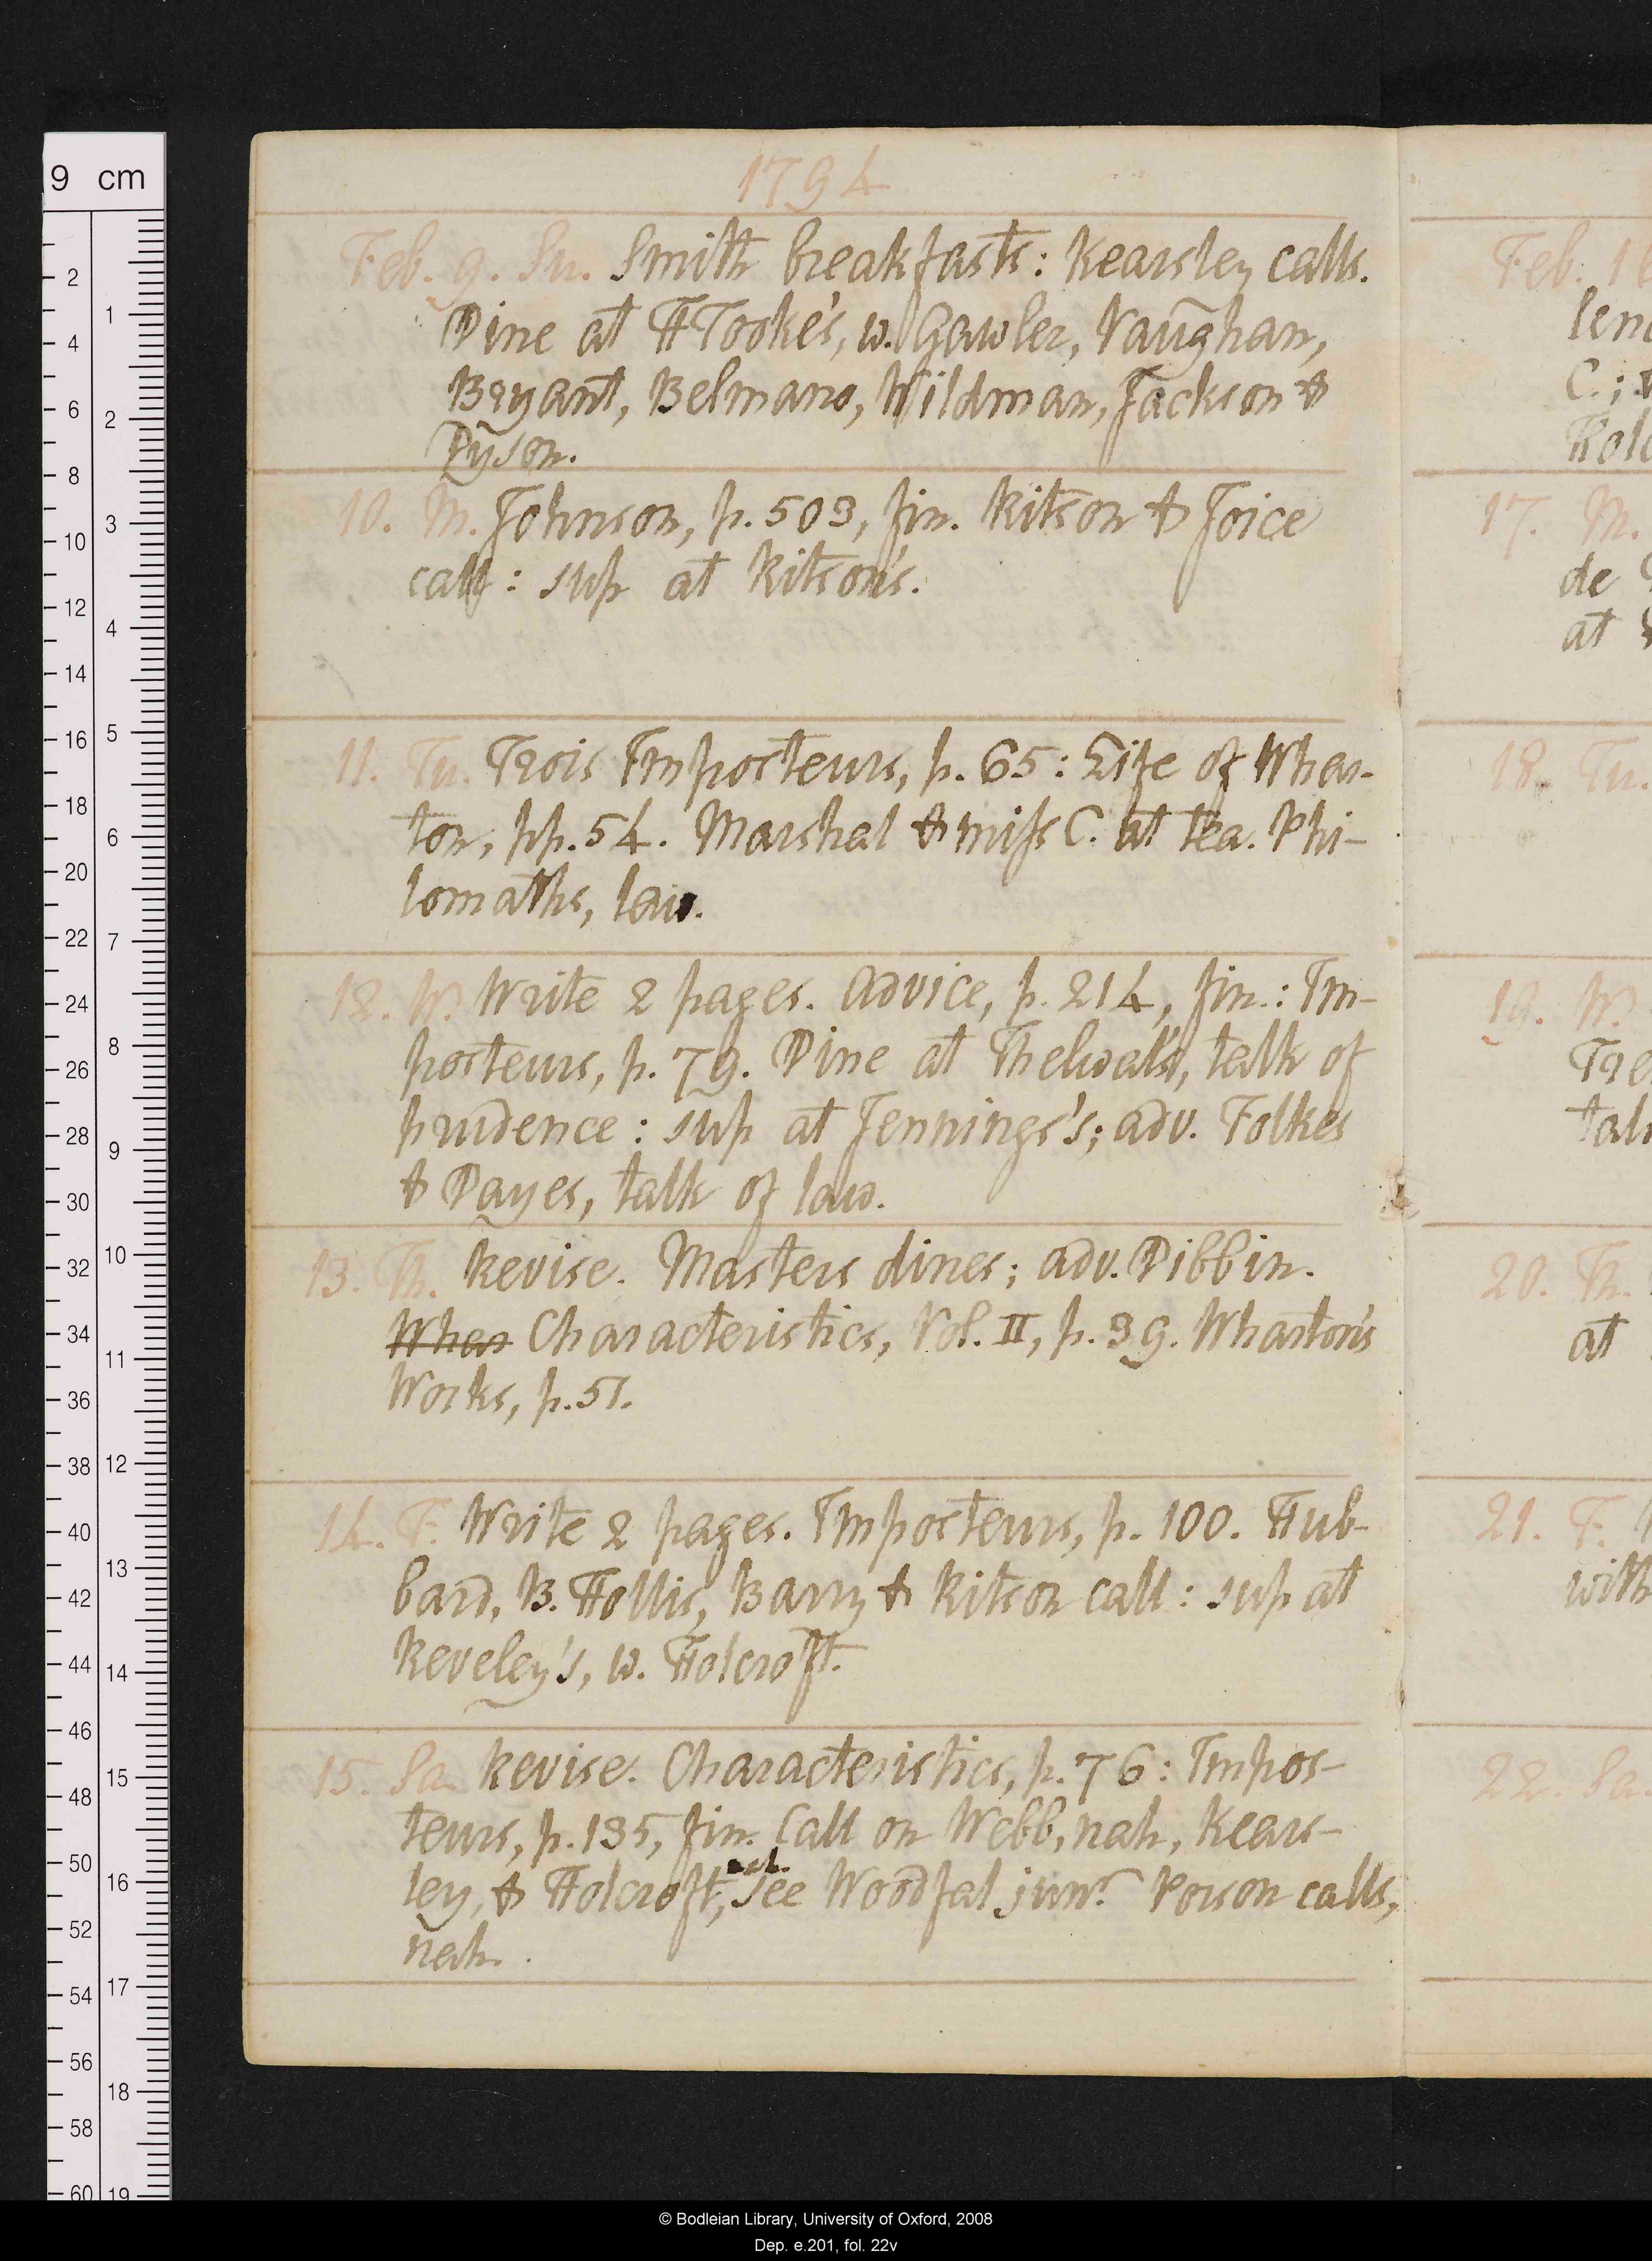 1794
Feb. 9. Su. Smith breakfasts: Kearsley calls.
Dine at HTooke's, w. Gawler, Vaughan,
Bryant, Belmano, Wildman, Jackson &
Dyson.
10. M. Johnson, p. 503, fin. Ritson & Joice
call: sup at Ritson's.
11. Tu. Trois Imposteurs, p. 65: Life of Whar-
ton, pp. 54. Marshal & miss C. at tea. Phi-
lomaths, law.
12. W. Write 2 pages. Advice, p. 214, fin.: Im-
posteurs, p. 79. Dine at Thelwal's, talk of
prudence: sup at Jennings's; adv. Folkes
& Dayes, talk of law.
13. Th. Revise. Masters dines; adv. Dibbin.
Whar Characteristics, Vol. II, p. 39. Wharton's
Works, p. 51.
14. F. Write 2 pages. Imposteurs, p. 100. Hub-
bard, B. Hollis, Barry & Ritson call: sup at
Reveley's, w. Holcroft.
15. Sa. Revise. Characteristics, p. 76: Impos-
teurs, p. 135, fin. Call on Webb, nah, Kears-
ley, & Holcroft, nah. see Woodfal junr. Porson calls,
nah.
Feb. 16
C.;
17. M.
de
at
18. Tu.
19. W.
20. Th.
at
21. F.
with
22. Sa.
9 cm
2
4
6
8
10
12
14
16
18
20
22
24
26
28
30
32
34
36
38
40
42
44
46
48
50
52
54
56
58
60
1
2
3
4
5
6
7
8
9
10
11
12
13
14
15
16
17
18
19
© Bodleian Library, University of Oxford, 2008
Dep. e.201, fol. 22v